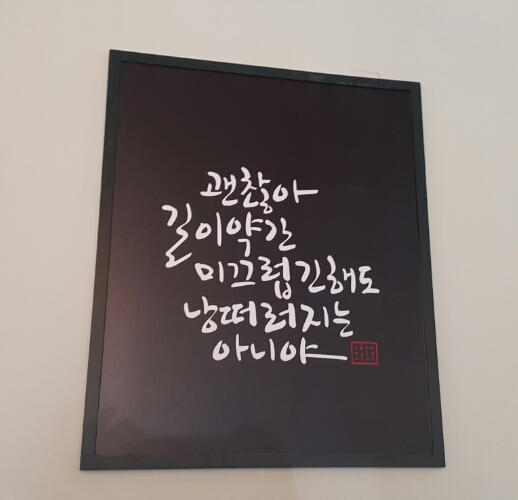 괜찮아
길이약간
미끄럽긴해도
낭떠러지는
아니야